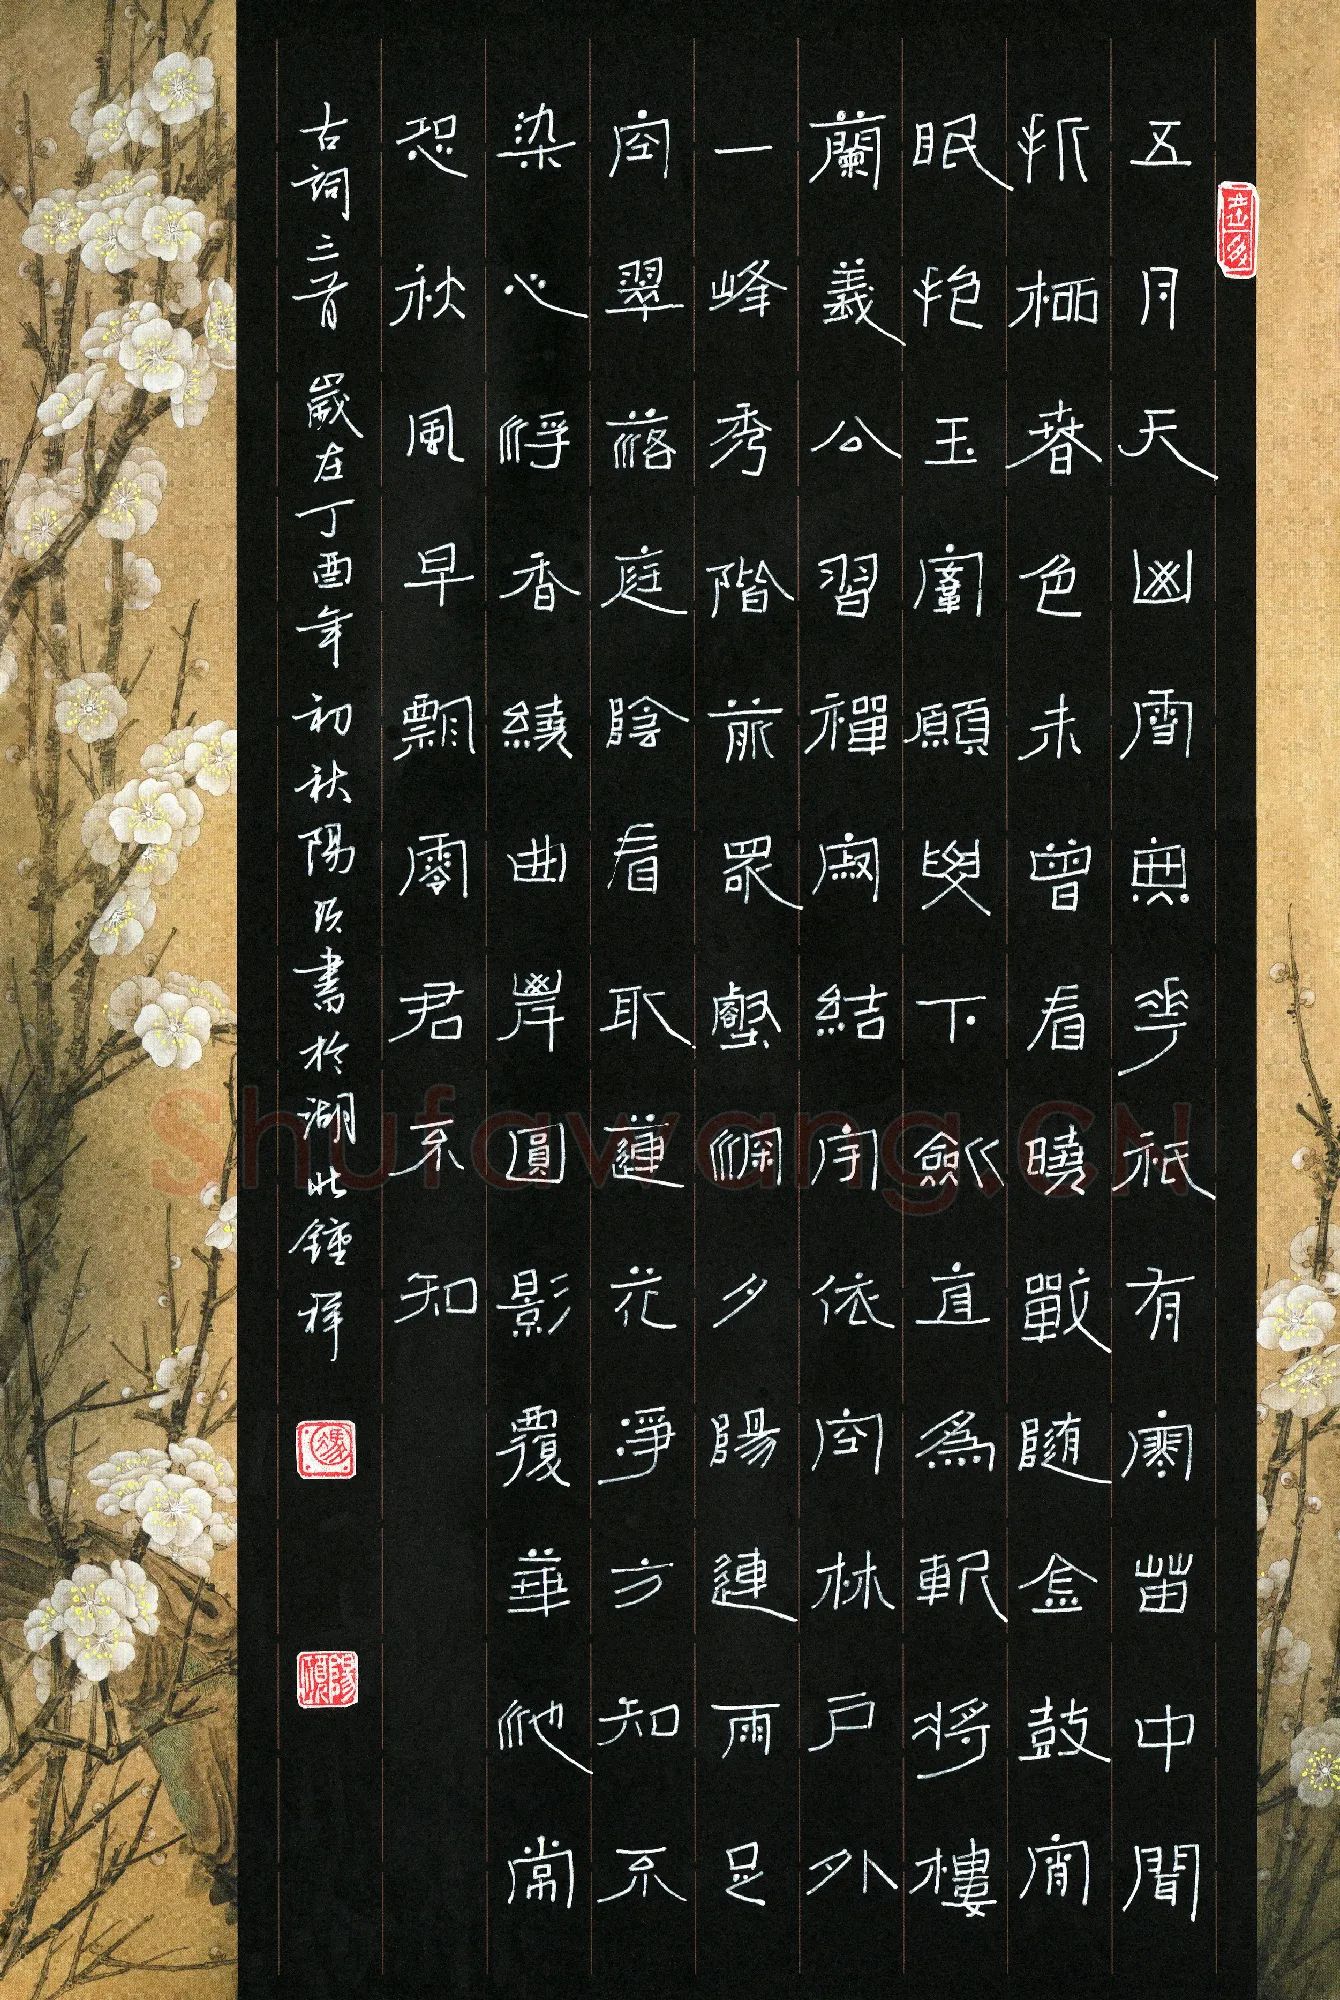 五月天山雪無花祇有寒笛中聞
折柳春色未曾看曉戰隨金鼓宵
眠抱玉鞍願腰下劍直為斬將樓
蘭義公習禪寂結宇依空林戶外
一峰秀階前眾壑深夕陽連雨足
空翠落庭陰看取蓮花淨方知不
染心浮香繞曲岸圓影覆華池常
恐秋風早飄零君不知
古詞三首 歲在丁酉年初秋陽書於湖北鍾祥
Shufawang.CN